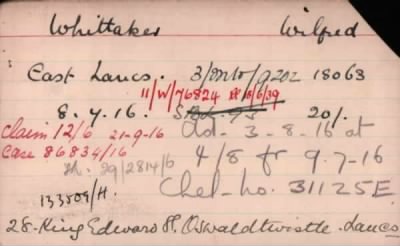 Whittaker Wilfred
East Lancs. 18063
11/W/76824 18/6/39
8.7.16. 20/.
Claim 12/6 21-9-16 3-8-16 at
Case 86834/16 4/8 fr 9.7-16
29/2814/6 Chel-no. 31125E
133505/H.
28. King Edward St. Oswaldtwistle. Lancs